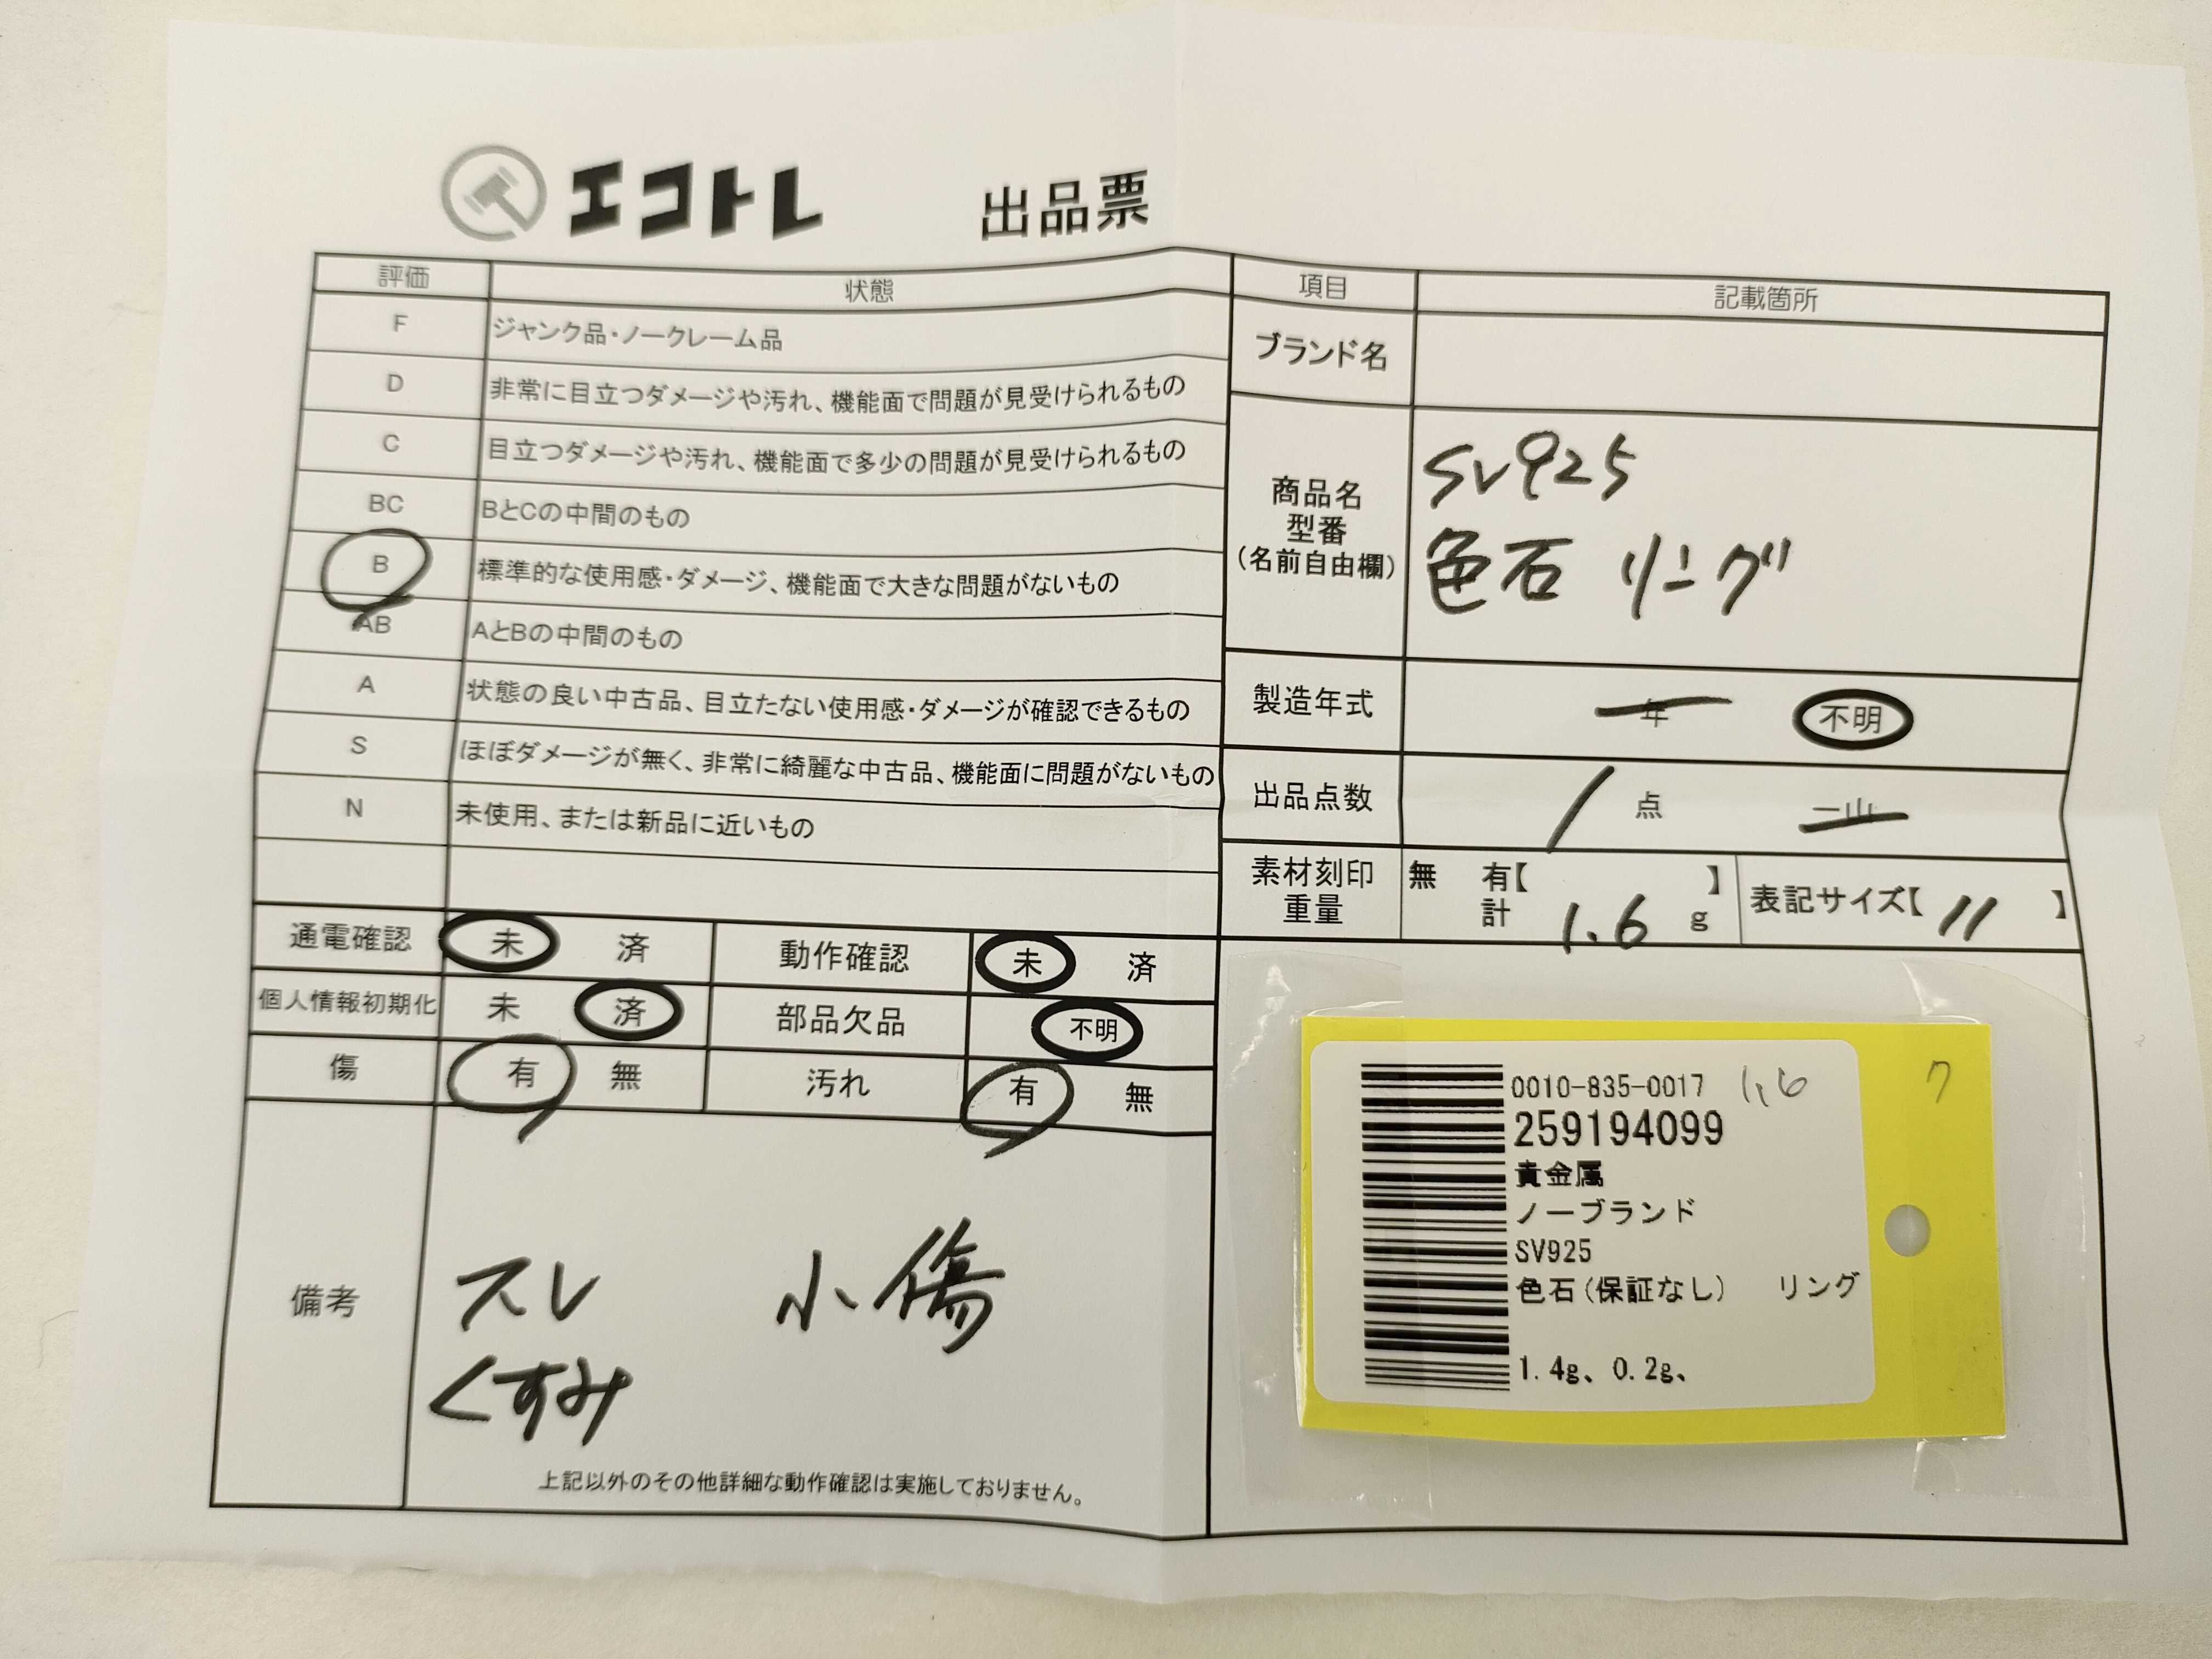 エコトレ 出品票
評価 状態
F ジャンク品・ノークレーム品
D 非常に目立つダメージや汚れ、機能面で問題が見受けられるもの
C 目立つダメージや汚れ、機能面で多少の問題が見受けられるもの
BC BとCの中間のもの
B 標準的な使用感・ダメージ、機能面で大きな問題がないもの
AB AとBの中間のもの
A 状態の良い中古品、目立たない使用感・ダメージが確認できるもの
S ほぼダメージが無く、非常に綺麗な中古品、機能面に問題がないもの
N 未使用、または新品に近いもの
通電確認 未 済 動作確認 未 済
個人情報初期化 未 済 部品欠品 不明
傷 有 無 汚れ 有 無
備考
スレ 小傷
くすみ
上記以外のその他詳細な動作確認は実施しておりません。
項目 記載箇所
ブランド名
商品名
型番
(名前自由欄)
SV925
色石 リング
製造年式 年 不明
出品点数 1 点 一山
素材刻印 無 有【 】
重量 計 1.6 g
表記サイズ【 11 】
0010-835-0017 1.6 7
259194099
貴金属
ノーブランド
SV925
色石(保証なし) リング
1.4g、0.2g、